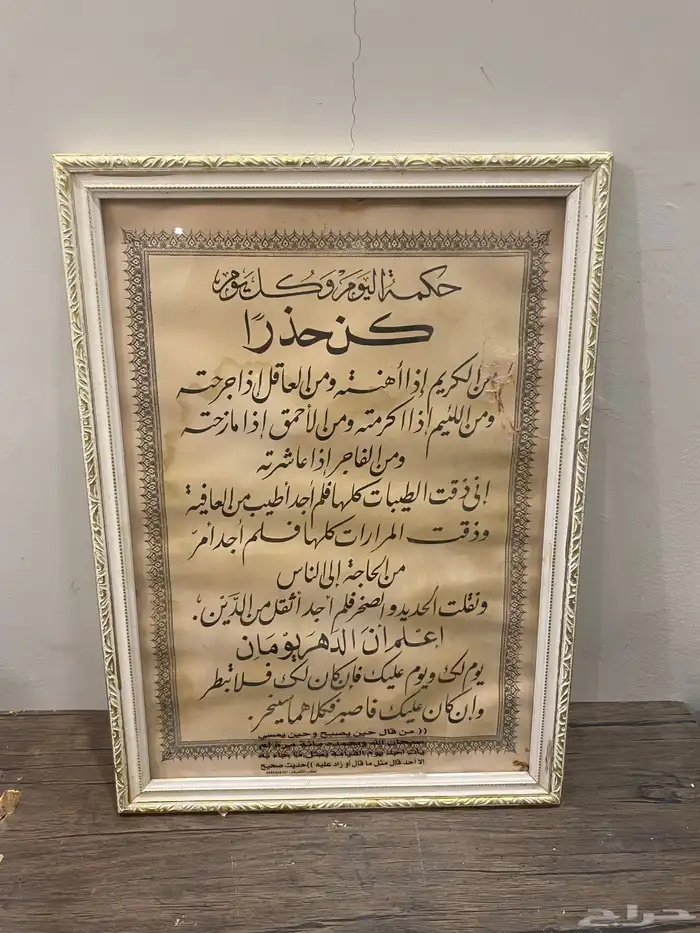 حكمة اليوم وكل يوم
كن حذرًا
من الكريم إذا أهنته ومن العاقل إذا جرحته
ومن اللئيم إذا اكرمته ومن الأحمق إذا مازحته
ومن الفاجر إذا عاشرته
إني ذقت الطيبات كلها فلم أجد أطيب من العافية
وذقت المرارات كلها فلم أجد أمرّ
من الحاجة إلى الناس
ونقلت الحديد والصخر فلم أجد أثقل من الدَّيْن.
اعْلم أنَ الدهرَ يوْمَان
يوم لك ويوم عليك فإن كان لك فلا تبطر
وإن كان عليك فاصبر فكلاهما سينحر.
(( من قال حين يصبح و حين يمسي
إلا أحد قال مثل ما قال أو زاد عليه )) حديث صحيح
حراج